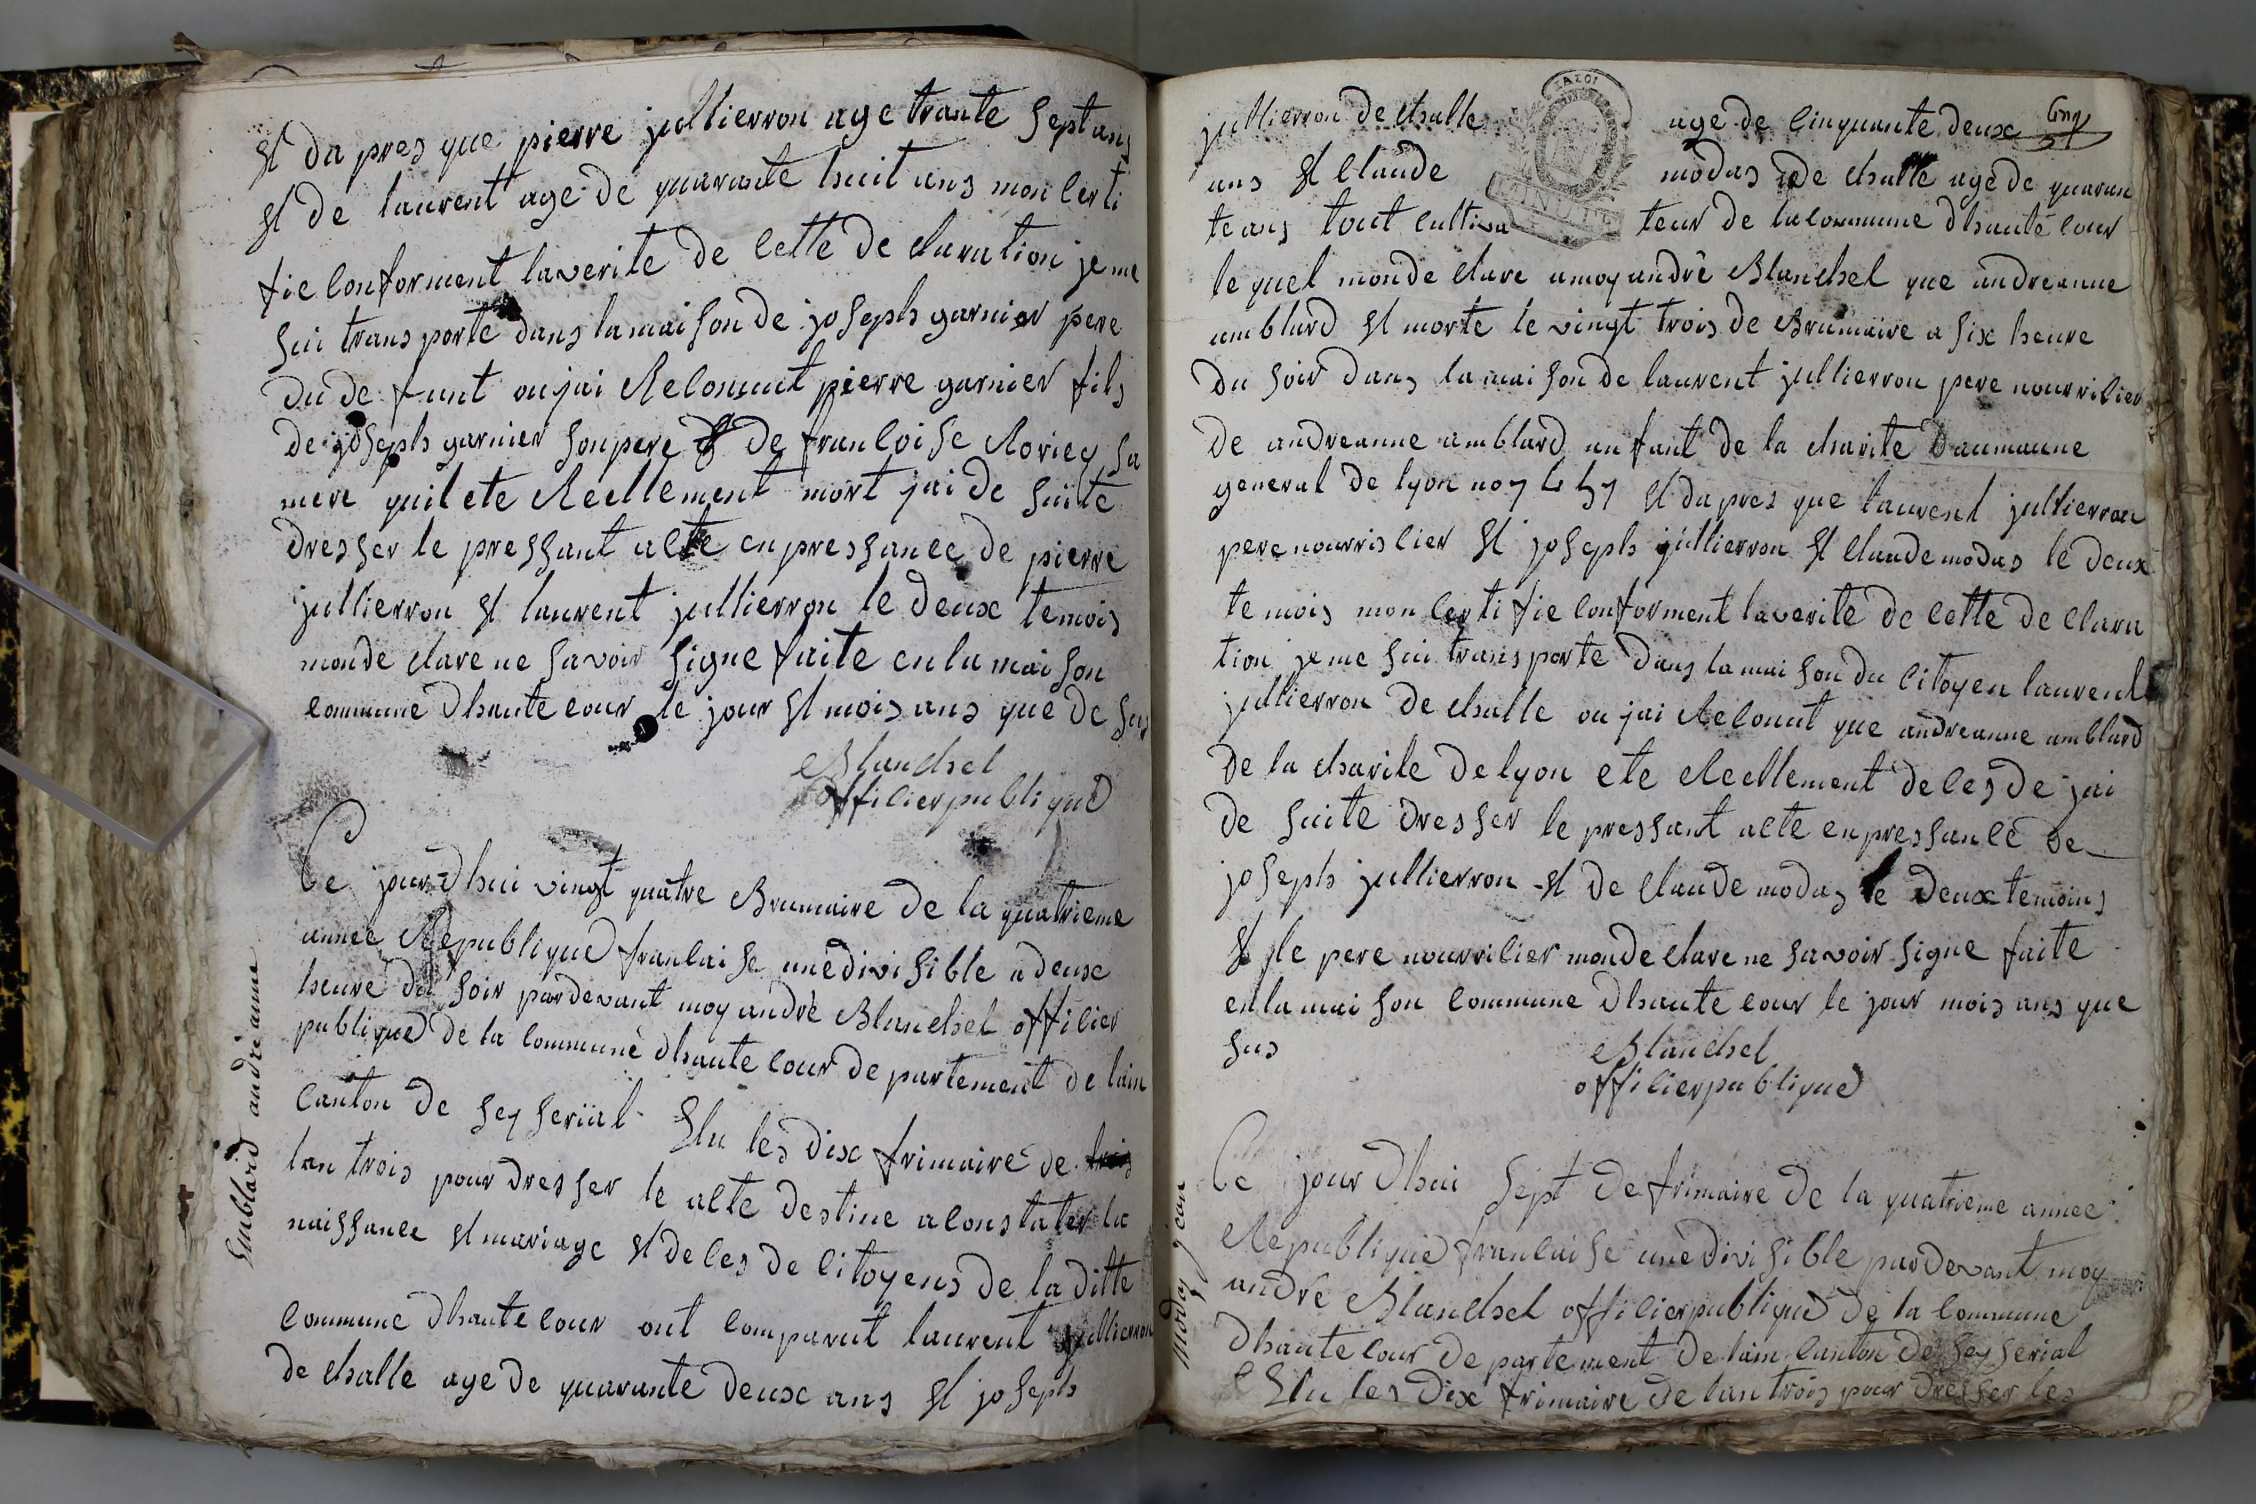 et da pres que pierre jullierron age trante sept ans
et de laurent age de quarante huit ans mon certi
fie conforment laverite de cette de claration je me
sui trans porte dans la mai son de joseph garnier pere
du de funt ou jai Reconnut pierre garnier fils
de joseph garnier son pere et de francoise Roriey sa
mere quil ete Reellement mort jai de suite
dresser le pressant acte en pressance de pierre
jullierron et laurent jullierron le deux temois
monde clare ne savoir signe faite en la mai son
commune dhaute cour le jour et mois ans que de sus
Blanchet
officier publique
Emblard andré anne
Ce jour dhui vingt quatre Brumaire de la quatrieme
annee Republique francaise unedivisible a deux
heure du soir pardevant moy andré Blanchet officier
publique de la commune dhaute cour de partement de lain
canton de seyseriat Elu les dix frimaire de trois
lan trois pour dresser le acte destine a constater la
naissance et mariage et de ces de citoyens de la ditte
commune dhaute cour ont comparut laurent jullierron
de challe age de quarante deux ans et joseph
jullierron de challe age de cinquante deux
51
ans et Claude modas de challe age de quaran
te ans tout cultiva teur de la commune dhaute cour
le quel monde clare a moy andré Blanchet que andreanne
amblard et morte le vingt trois de Brumaire a six heure
du soir dans la mai son de laurent jullierron pere nourricier
de andreanne amblard enfant de la charite daumaune
general de lyon no 7457 et da pres que laurent jullierron
pere nourriscier et joseph jullierron et claude modas le deux
te mois mon certi fie conforment laverite de cette de clara
tion je me sui transporte dans la mai son du citoyen laurent
jullierron de challe ou jai Reconut que andreanne amblard
de la charite de lyon ete Reellement de ces de jai
de suite dresser le pressant acte en pressance de
joseph jullierron et de claude modas le deux temoins
et le pere nourricier monde clare ne savoir signe faite
en la mai son commune dhaute cour le jour mois ans que
sus
Blanchet
officier publique
moday jean
Ce jour dhui sept de frimaire de la quatrieme annee
Republique francaise unedivisible pardevant moy
andré Blanchet officier publique de la commune
dhaute cour de partement de lain canton de seyseriat
Elu les dix frimaire de lan trois pour dresser les